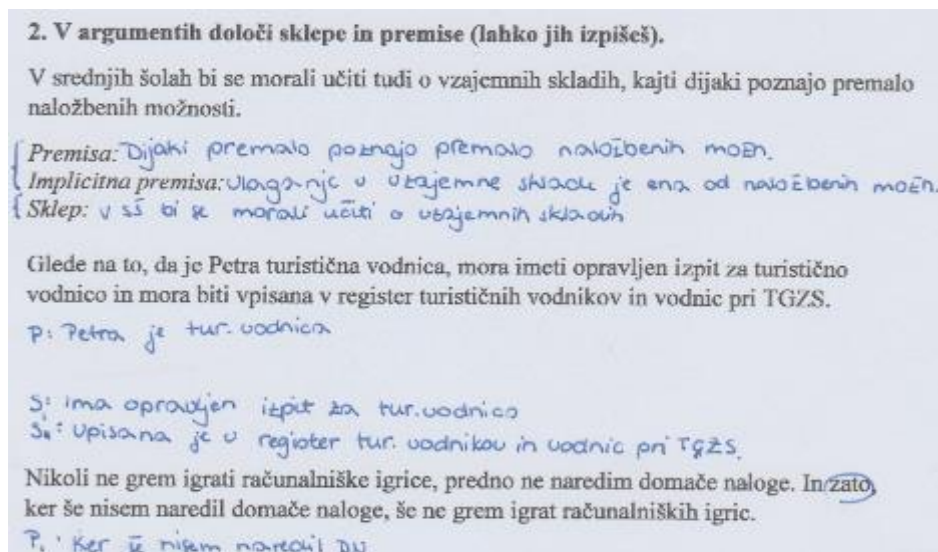 2. V argumentih določi sklepe in premise (lahko jih izpišeš).
V srednjih šolah bi se morali učiti tudi o vzajemnih skladih, kajti dijaki poznajo premalo
naložbenih možnosti.
Premisa: Dijaki premalo poznajo premalo naložbenih možn.
Implicitna premisa: vlaganje v vzajemne sklade je ena od naložbenih možn.
Sklep: v sš bi se morali učiti o vzajemnih skladih
Glede na to, da je Petra turistična vodnica, mora imeti opravljen izpit za turistično
vodnico in mora biti vpisana v register turističnih vodnikov in vodnic pri TGZS.
P: Petra je tur. vodnica
S: ima opravljen izpit za tur. vodnico
: Vpisana je v register tur. vodnikov in vodnic pri TGZS.
Nikoli ne grem igrati računalniške igrice, predno ne naredim domače naloge. In zato,
ker še nisem naredil domače naloge, še ne grem igrat računalniških igric.
P1: Ker še nisem naredil DN